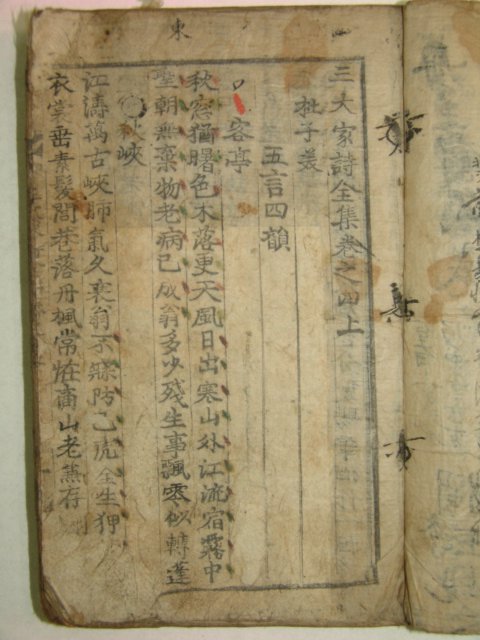 東
三大家詩全集卷之四上
杜子美
五言四韻
客亭
秋窓猶曙色木落更天風日出寒山外江流宿霧中
聖朝無棄物老病已成翁多少残生事飄零似轉蓬
秋峽
江濤萬古峽肺氣久衰翁不寐防巴虎全生狎
衣裳垂素髮閭巷落丹楓常恠商山老兼存